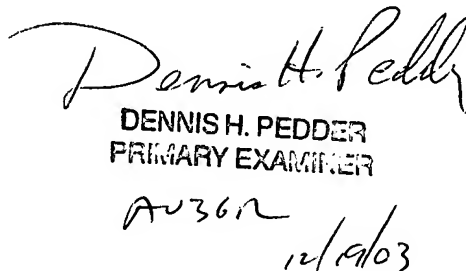 Dennis H. Pedder
DENNIS H. PEDDER
PRIMARY EXAMINER
AU3612
12/19/03